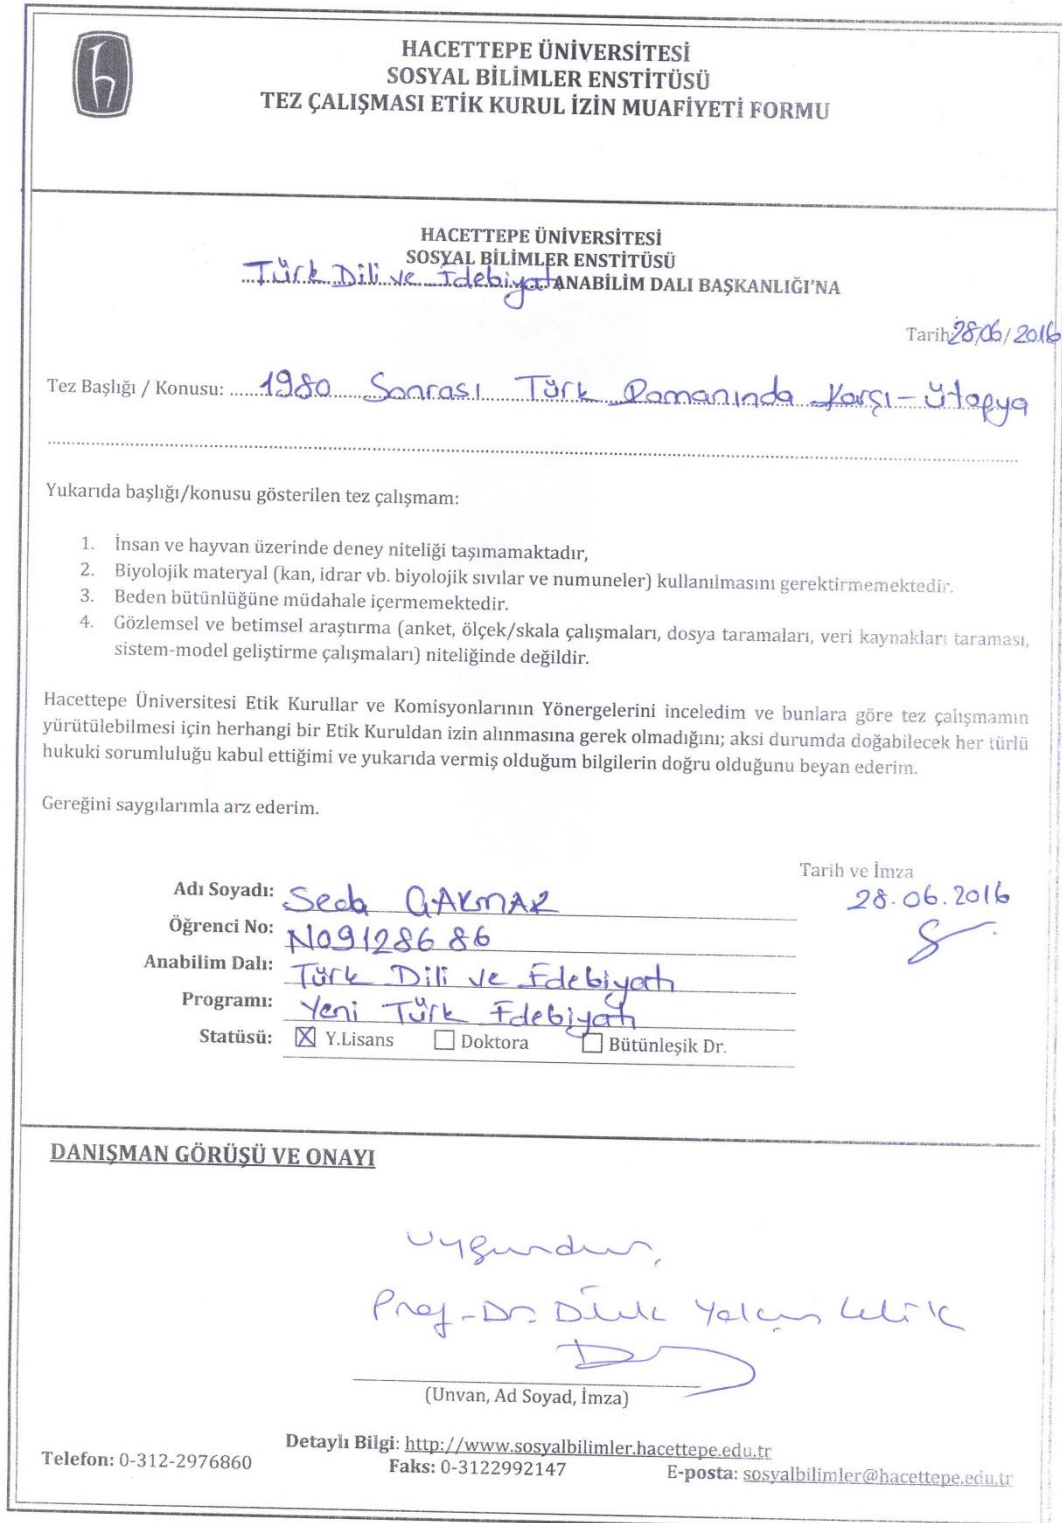 HACETTEPE ÜNİVERSİTESİ
SOSYAL BİLİMLER ENSTİTÜSÜ
TEZ ÇALIŞMASI ETİK KURUL İZİN MUAFİYETİ FORMU
HACETTEPE ÜNİVERSİTESİ
SOSYAL BİLİMLER ENSTİTÜSÜ
Türk Dili ve Edebiyatı ANABİLİM DALI BAŞKANLIĞI'NA
Tarih: 28/06/2016
Tez Başlığı / Konusu: 1980 Sonrası Türk Romanında Karşı-Ütopya
Yukarıda başlığı/konusu gösterilen tez çalışmam:
1. İnsan ve hayvan üzerinde deney niteliği taşımamaktadır,
2. Biyolojik materyal (kan, idrar vb. biyolojik sıvılar ve numuneler) kullanılmasını gerektirmemektedir.
3. Beden bütünlüğüne müdahale içermemektedir.
4. Gözlemsel ve betimsel araştırma (anket, ölçek/skala çalışmaları, dosya taramaları, veri kaynakları taraması,
sistem-model geliştirme çalışmaları) niteliğinde değildir.
Hacettepe Üniversitesi Etik Kurullar ve Komisyonlarının Yönergelerini inceledim ve bunlara göre tez çalışmamın
yürütülebilmesi için herhangi bir Etik Kuruldan izin alınmasına gerek olmadığını; aksi durumda doğabilecek her türlü
hukuki sorumluluğu kabul ettiğimi ve yukarıda vermiş olduğum bilgilerin doğru olduğunu beyan ederim.
Gereğini saygılarımla arz ederim.
Tarih ve İmza
28.06.2016
Adı Soyadı: Seda
Öğrenci No: N09128686
Anabilim Dalı: Türk Dili ve Edebiyatı
Programı: Yeni Türk Edebiyatı
Statüsü: ☒ Y.Lisans ☐ Doktora ☐ Bütünleşik Dr.
DANIŞMAN GÖRÜŞÜ VE ONAYI
Uygundur,
Prof. Dr. Dilek Yalçın Çelik
(Unvan, Ad Soyad, İmza)
Detaylı Bilgi: http://www.sosyalbilimler.hacettepe.edu.tr
Telefon: 0-312-2976860 Faks: 0-3122992147 E-posta: sosyalbilimler@hacettepe.edu.tr